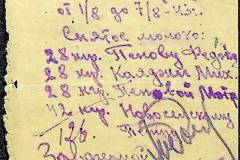 от 1/8 до 7/8-43г.
Снятое молоко:
28 кгр. Попову Федору
28 кгр. Каздым Мих.
28 кгр. Поповой Мотр
42 кгр. Новосельскому
126 Петру